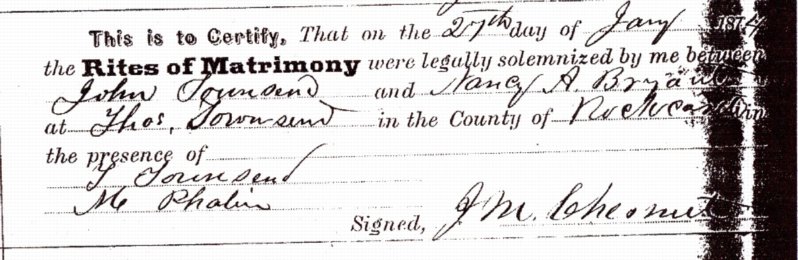 This is to Certify, That on the 27th day of Jany 1874
the Rites of Matrimony were legally solemnized by me between
John Townsend and Nancy A. Bryant
at Thos. Townsend in the County of Rockcas in
the presence of
T Townsend
Mc Phalin
Signed, J. M. Chesnut